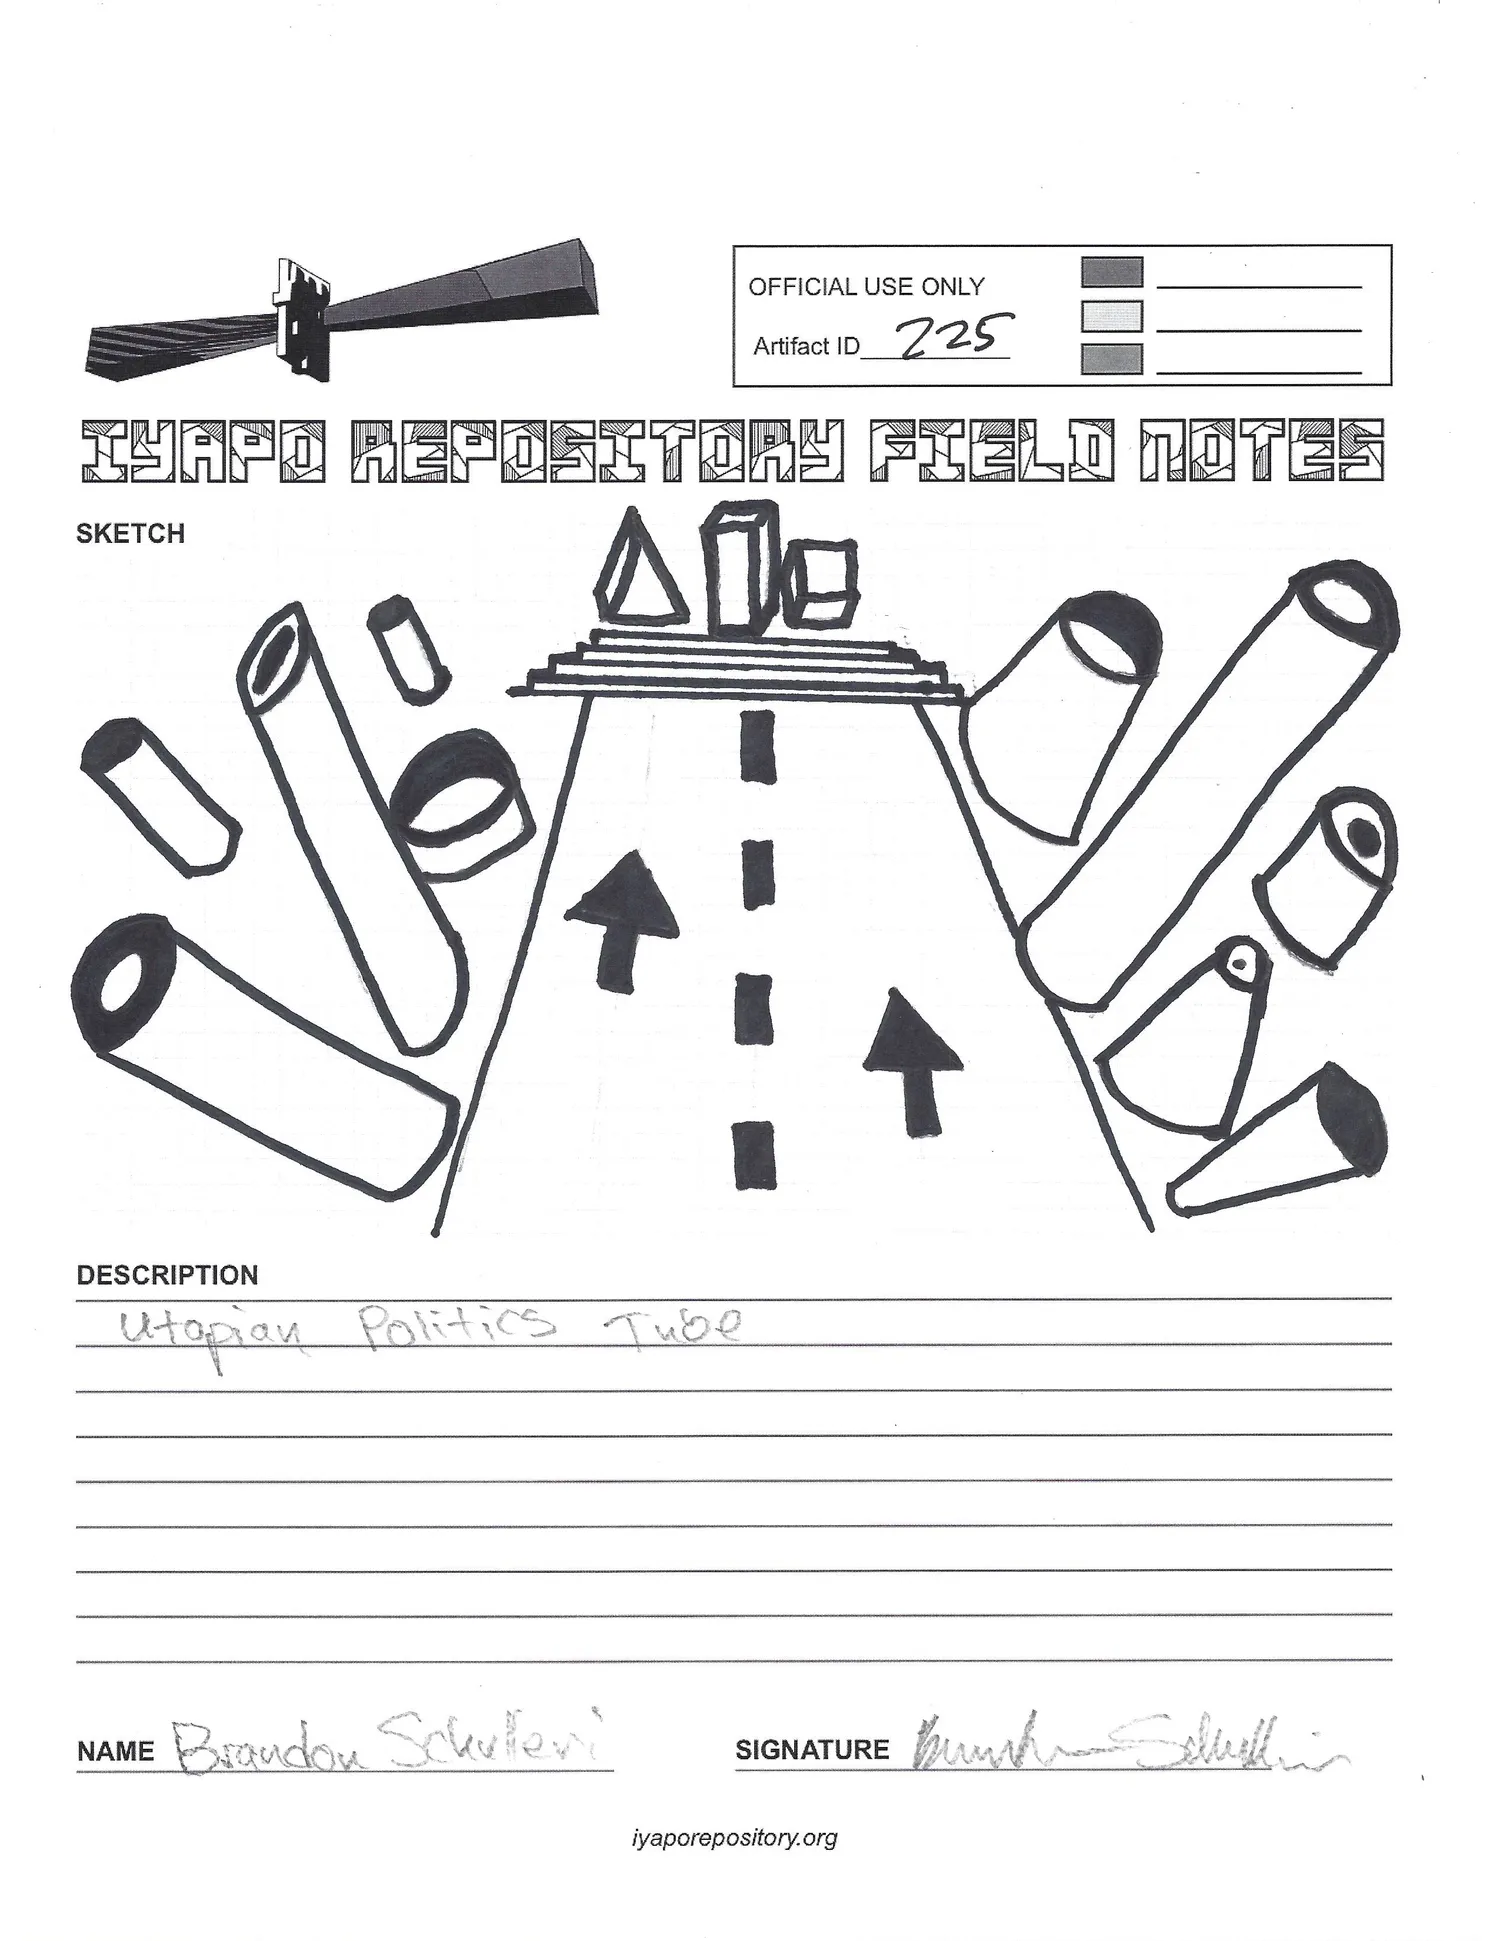 OFFICIAL USE ONLY
Artifact ID 225
IYAPO REPOSITORY FIELD NOTES
SKETCH
DESCRIPTION
Utopian Politics Tube
NAME Brandon
SIGNATURE
iyaporepository.org